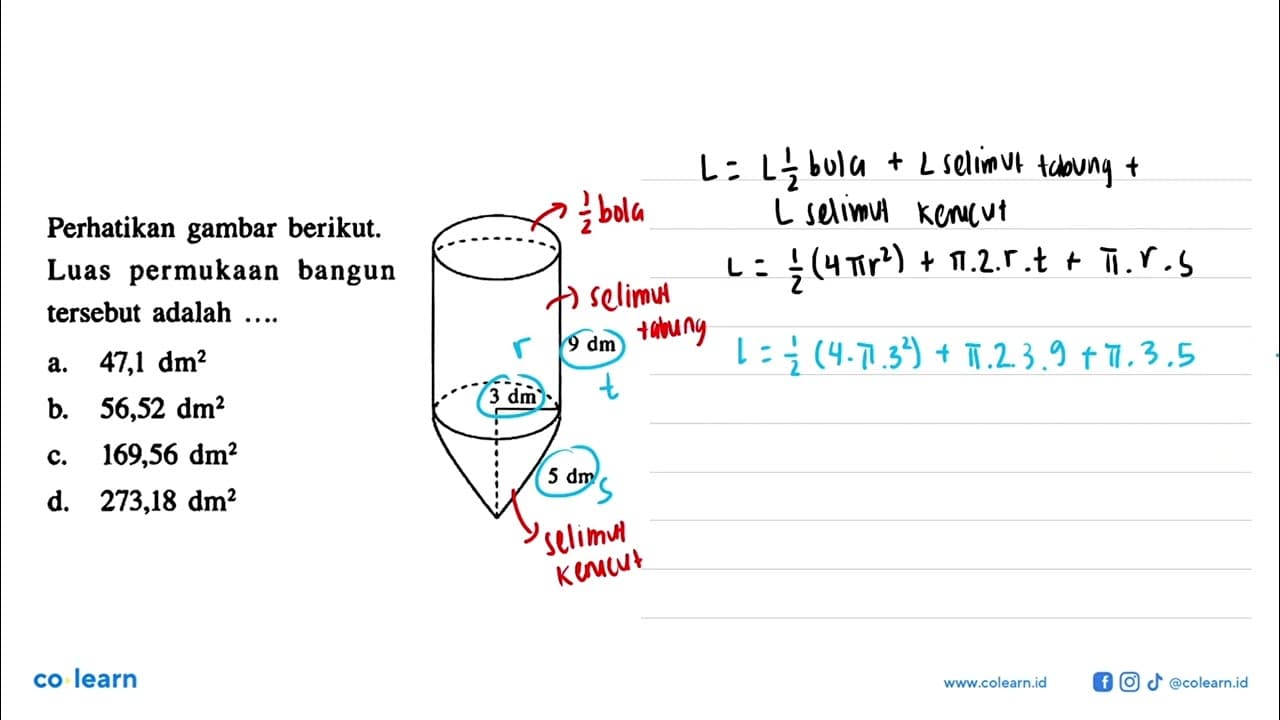 Perhatikan gambar berikut.
Luas permukaan bangun
tersebut adalah ....
a. 47,1 dm²
b. 56,52 dm²
c. 169,56 dm²
d. 273,18 dm²
½ bola
selimut
tabung
r
9 dm
t
3 dm
5 dm
s
selimut
kerucut
L = L ½ bola + L selimut tabung +
L selimut kerucut
L = ½ (4πr²) + π.2.r.t + π.r.s
L = ½ (4.π.3²) + π.2.3.9 + π.3.5
co learn
www.colearn.id
@colearn.id